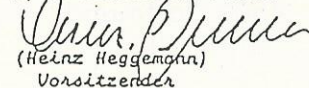 (Heinz Heggemann)
Vorsitzender